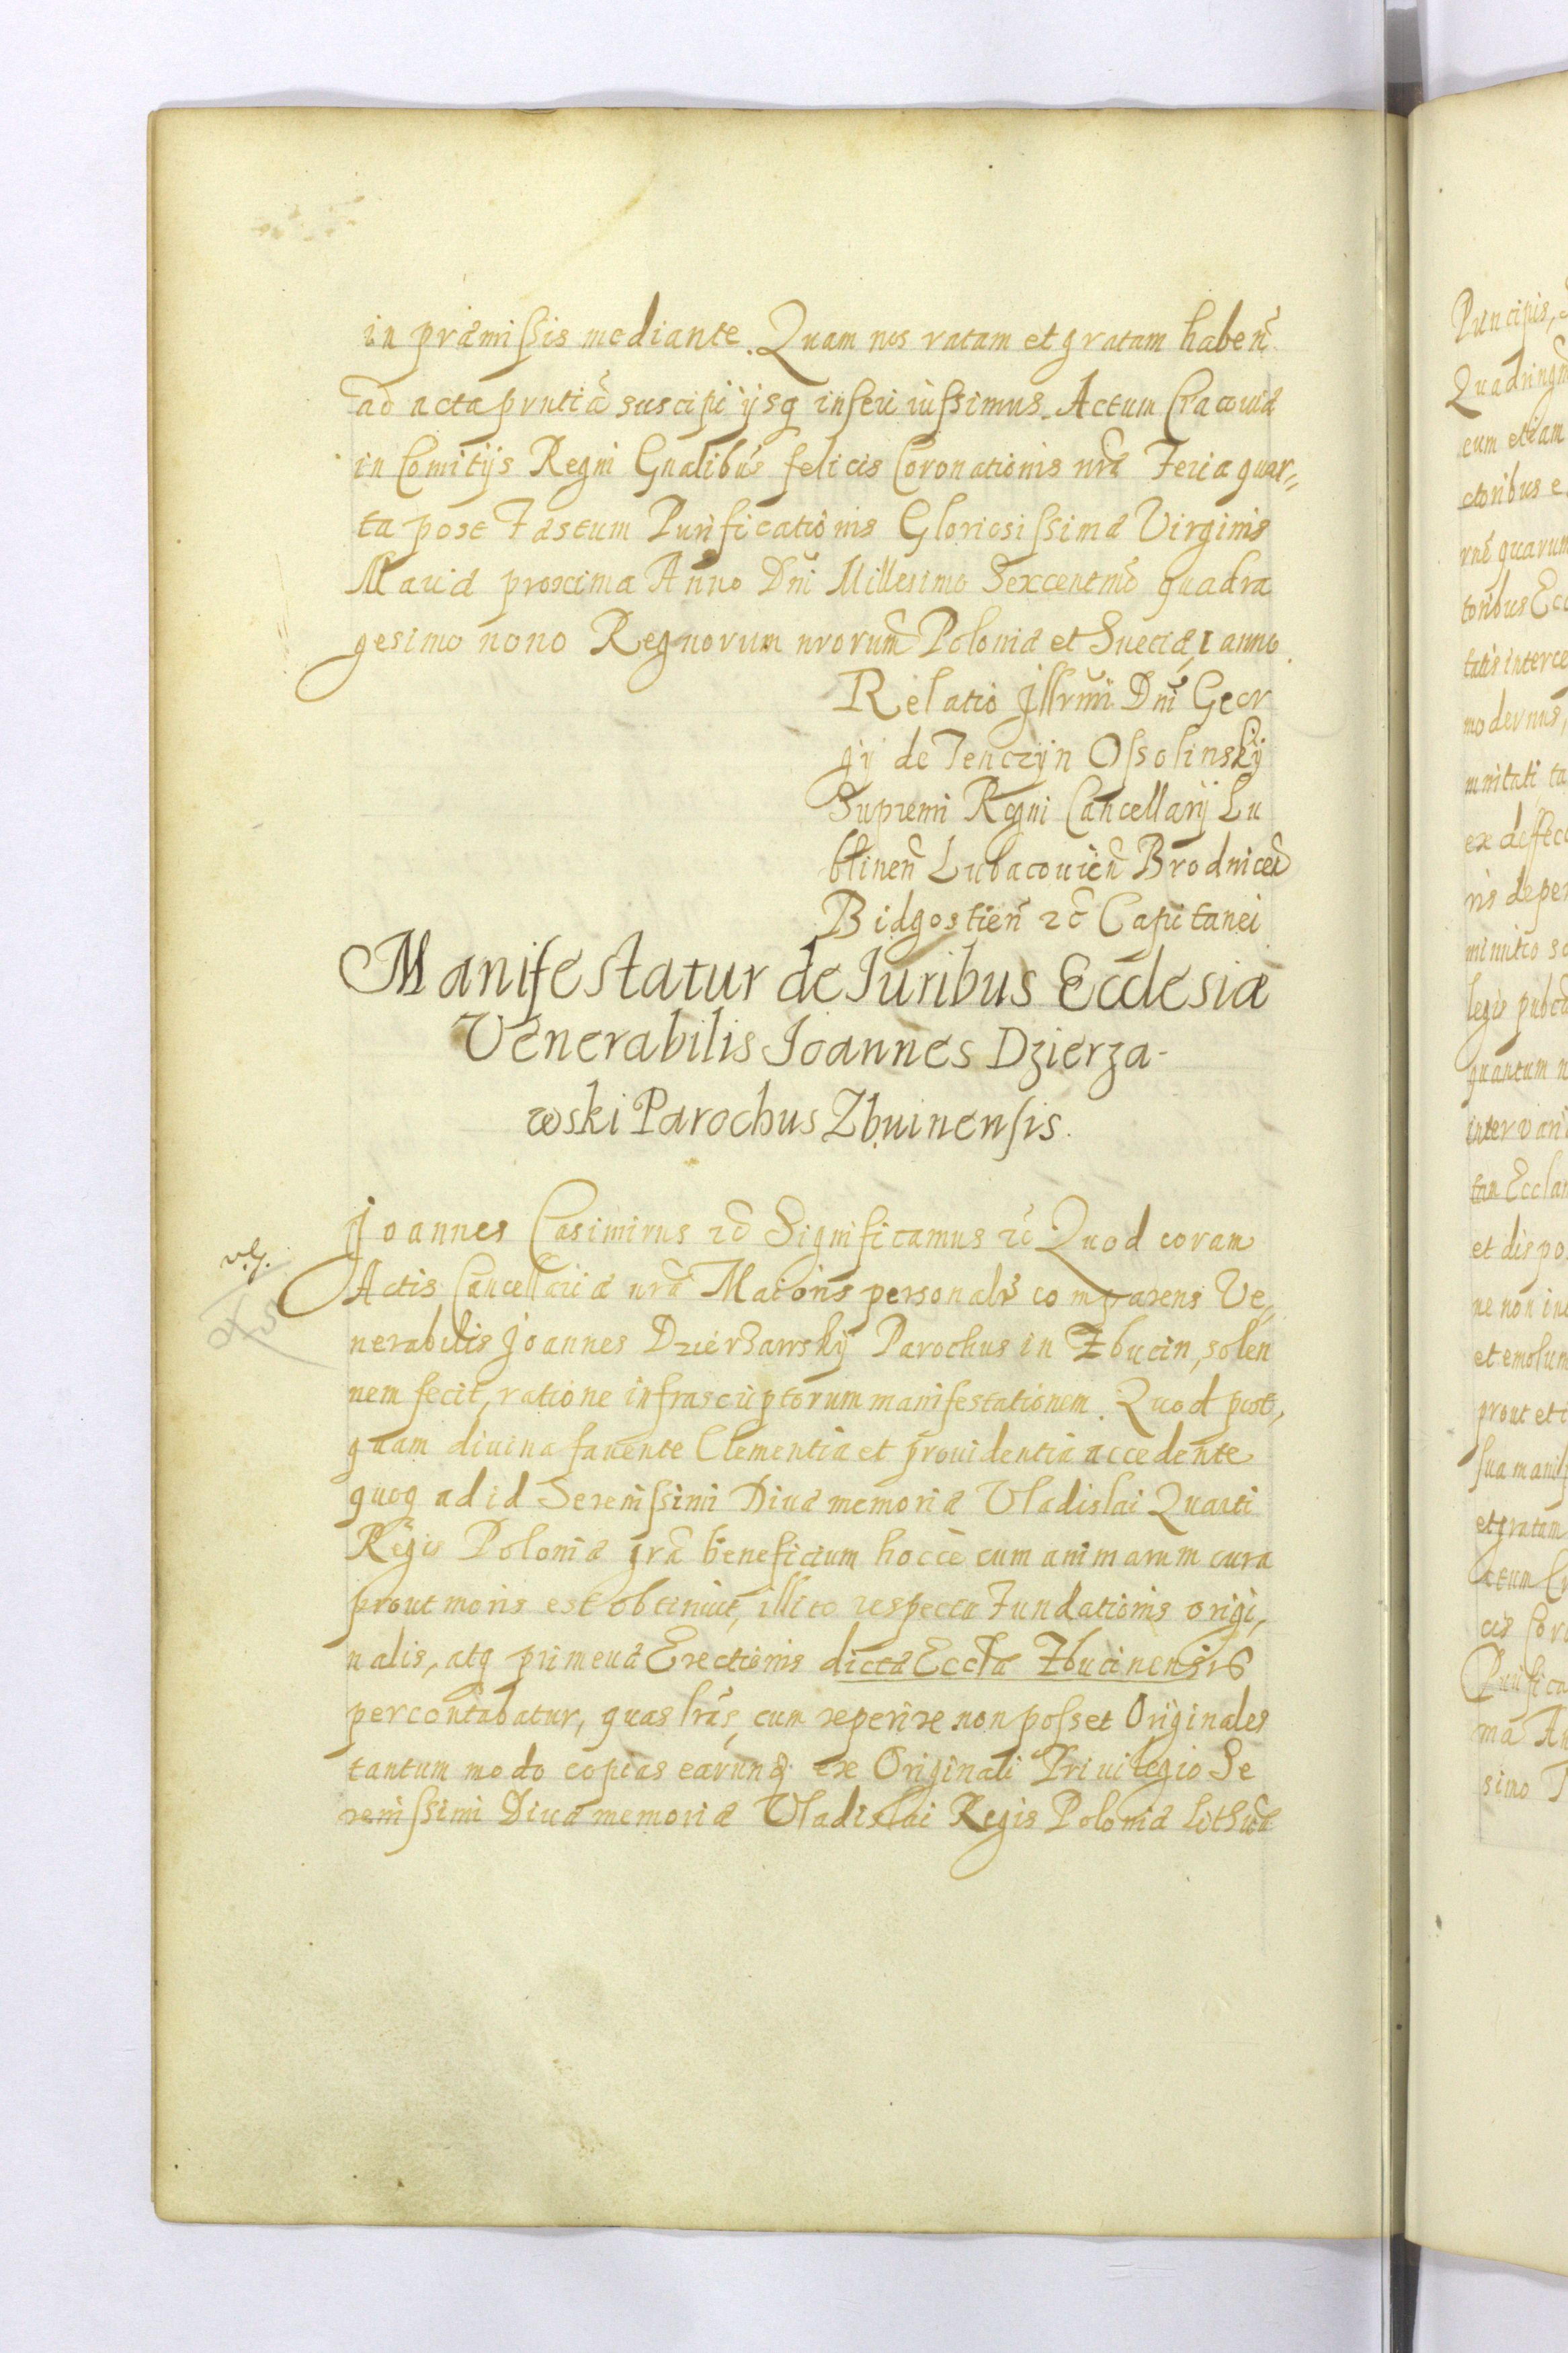 in præmissis mediante. Quam nos ratam et gratam haben̄
ad acta prntiā suscipi ijsq inseri iussimus. Actum Cracouiæ
in Comitijs Regni Gnalibus felicis Coronationis nrā Feria quar=
ta post Fæstum Purificationis Gloriosissimæ Virginis
Mariæ proxima Anno Dni Millesimo Sexcentmō quadra
gesimo nono Regnorum nrorum Poloniæ et Sueciæ, I anno.
Relatio Jllrmi Dni Geor
gij de Tenczyn Ossolinskij
Supremi Regni Cancellarij Lu
blinen̄ Lubacouien̄ Brodnicen̄
Bidgostien̄ ꝛc̄ Capitanei
Manifestatur de Iuribus Ecclesiæ
Venerabilis Joannes Dzierza-
wski Parochus Zbuinensis.
Joannes Casimirus ꝛc̄ Significamus ꝛc̄ Quod coram
Actis Cancellariæ nrā Maioris personalr̄ comparens Ve=
nerabilis Joannes Dzierzawskij Parochus in Zbucin, solen
nem fecit, ratione infrascriptorum manifestationem. Quod post,
quam diuina fauente Clementia et prouidentia accedente
quoq ad id Serenissimi Diuæ memoriæ Vladislai Quarti
Regis Poloniæ grā beneficium hocce cum animarum cura
prout moris est obtinuit, illico respectu Fundationis origi,
nalis, atq primeuæ Erectionis dictæ Eccłæ Zbucinensis
percontabatur, quas lrās, cum reperire non posset Originales
tantum modo copias earunq ex Originali Priuilegio Se
renissimi Diuæ memoriæ Vladislai Regis Poloniæ Lithuæ